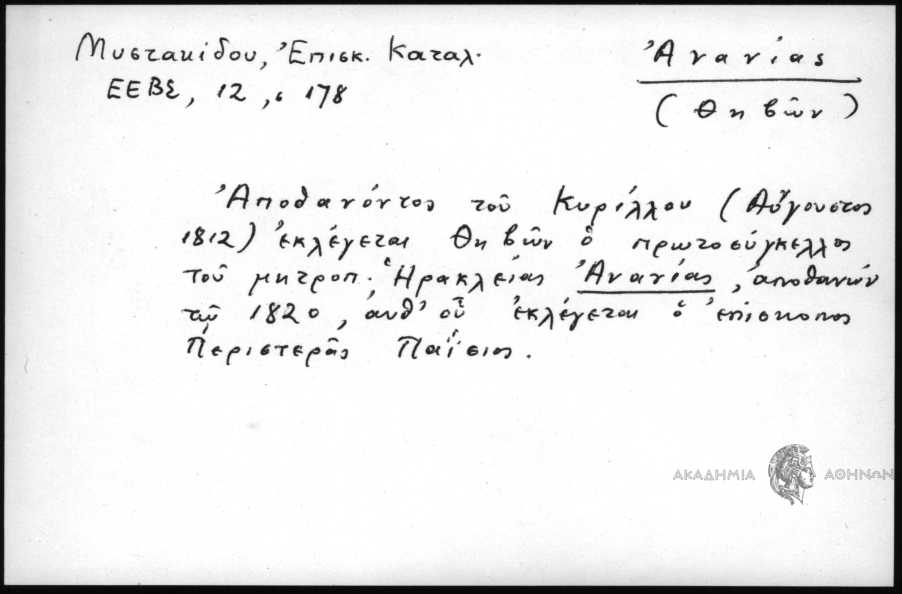 Μυστακίδου, Ἐπισκ. Καταλ.
ΕΕΒΣ, 12, σ 178
Ἀνανίας
(Θηβῶν)
Ἀποθανόντος τοῦ Κυρίλλου (Αὔγουστος
1812) ἐκλέγεται Θηβῶν ὁ πρωτοσύγκελλος
τοῦ μητροπ. Ἡρακλείας Ἀνανίας, ἀποθανών
τῷ 1820, ἀνθ' οὗ ἐκλέγεται ὁ ἐπίσκοπος
Περιστερᾶς Παΐσιος.
ΑΚΑΔΗΜΙΑ ΑΘΗΝΩΝ